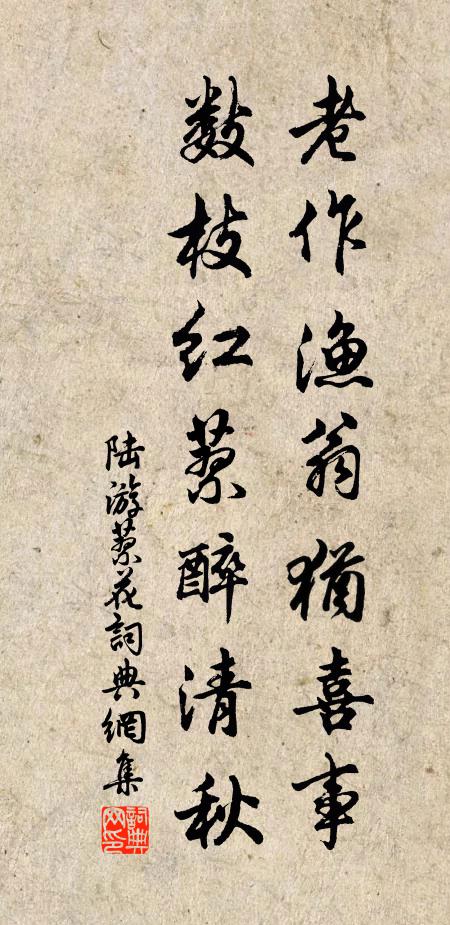 老作渔翁猶喜事
数枝红蓼醉清秋
陆游蓼花詞典網集
詞典网印